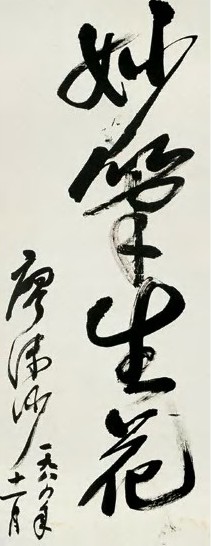 妙笔生花
廖沫沙
一九八六年
十一月